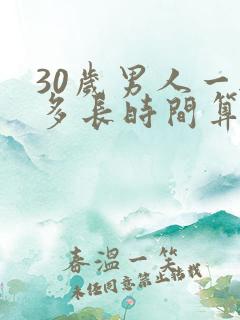 30歲男人一
多長時間算
春溫一笑
未经同意禁止转载